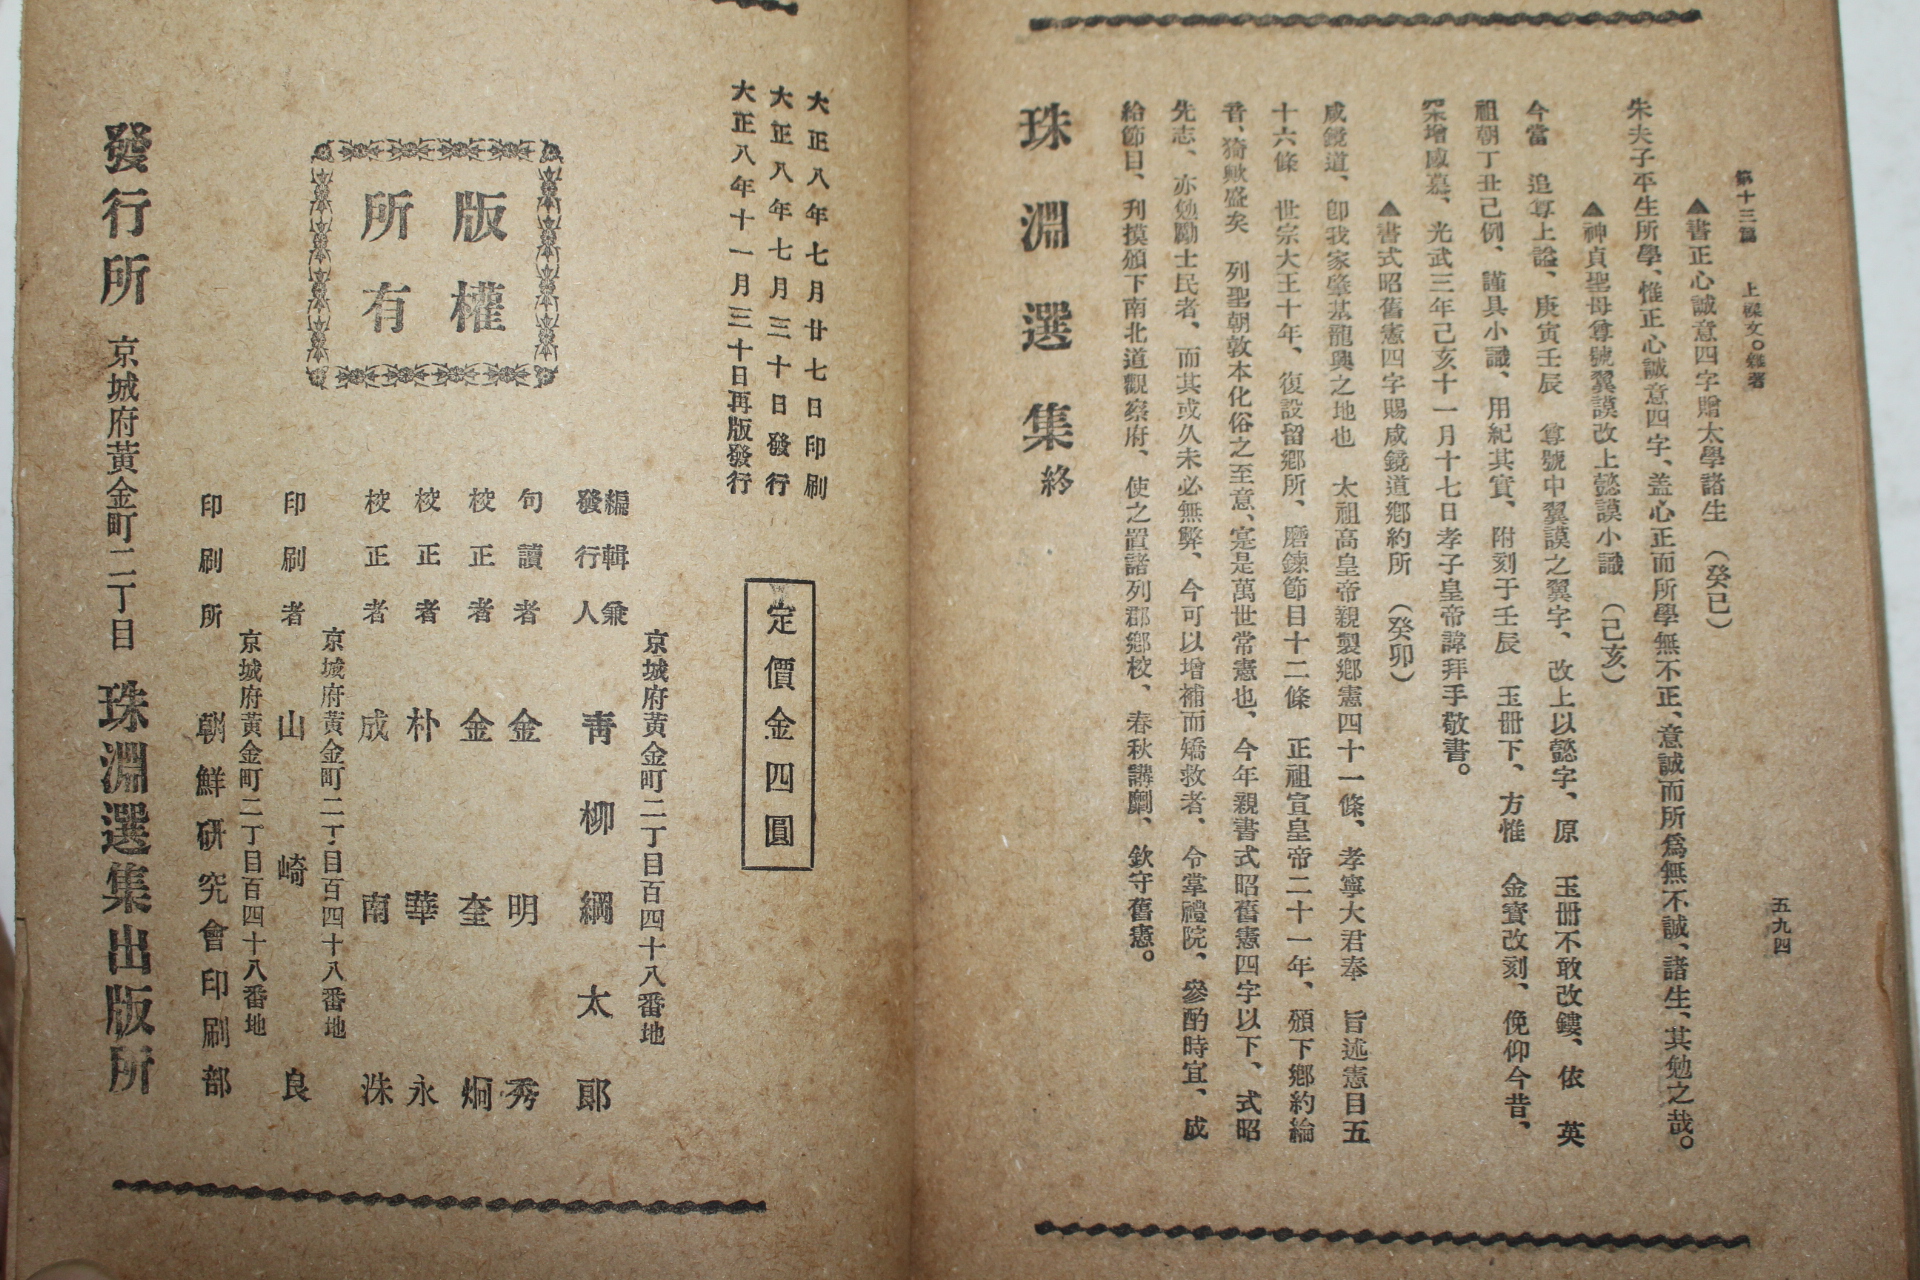 第十三篇 上樑文。雜著 五九四
▲書正心誠意四字贈太學諸生 (癸巳)
朱夫子平生所學、惟正心誠意四字、盖心正而所學無不正、意誠而所爲無不誠、諸生、其勉之哉。
▲神貞聖母尊號翼謨改上懿謨小識 (己亥)
今當 追尊上謚、庚寅壬辰 尊號中翼謨之翼字、改上以懿字、原 玉册不敢改鏤、依 英
祖朝丁丑己例、謹具小識、用紀其實、附刻于壬辰 玉册下、方惟 金寶改刻、俛仰今昔、
采增感慕、光武三年己亥十一月十七日孝子皇帝諱拜手敬書。
▲書式昭舊憲四字賜咸鏡道鄕約所 (癸卯)
咸鏡道、卽我家肇基龍興之地也 太祖高皇帝親製鄕憲四十一條、孝寧大君奉 旨述憲目五
十六條 世宗大王十年、復設留鄕所、磨鍊節目十二條 正祖宣皇帝二十一年、頒下鄕約綸
音、猗歟盛矣 列聖朝敦本化俗之至意、寔是萬世常憲也、今年親書式昭舊憲四字以下、式昭
先志、亦勉勵士民者、而其或久未必無弊、今可以增補而矯救者、令掌禮院、參酌時宜、成
給節目、刋摸頒下南北道觀察府、使之置諸列郡鄕校、春秋講劘、欽守舊憲。
珠淵選集終
大正八年七月廿七日印刷
大正八年七月三十日發行
大正八年十一月三十日再版發行
定價金四圓
版權
所有
京城府黃金町二丁目百四十八番地
編輯兼
發行人 靑柳綱太郞
句讀者 金明秀
校正者 金奎炯
校正者 朴華永
校正者 成南洙
京城府黃金町二丁目百四十八番地
印刷者 山崎良
京城府黃金町二丁目百四十八番地
印刷所 朝鮮硏究會印刷部
發行所 京城府黃金町二丁目 珠淵選集出版所